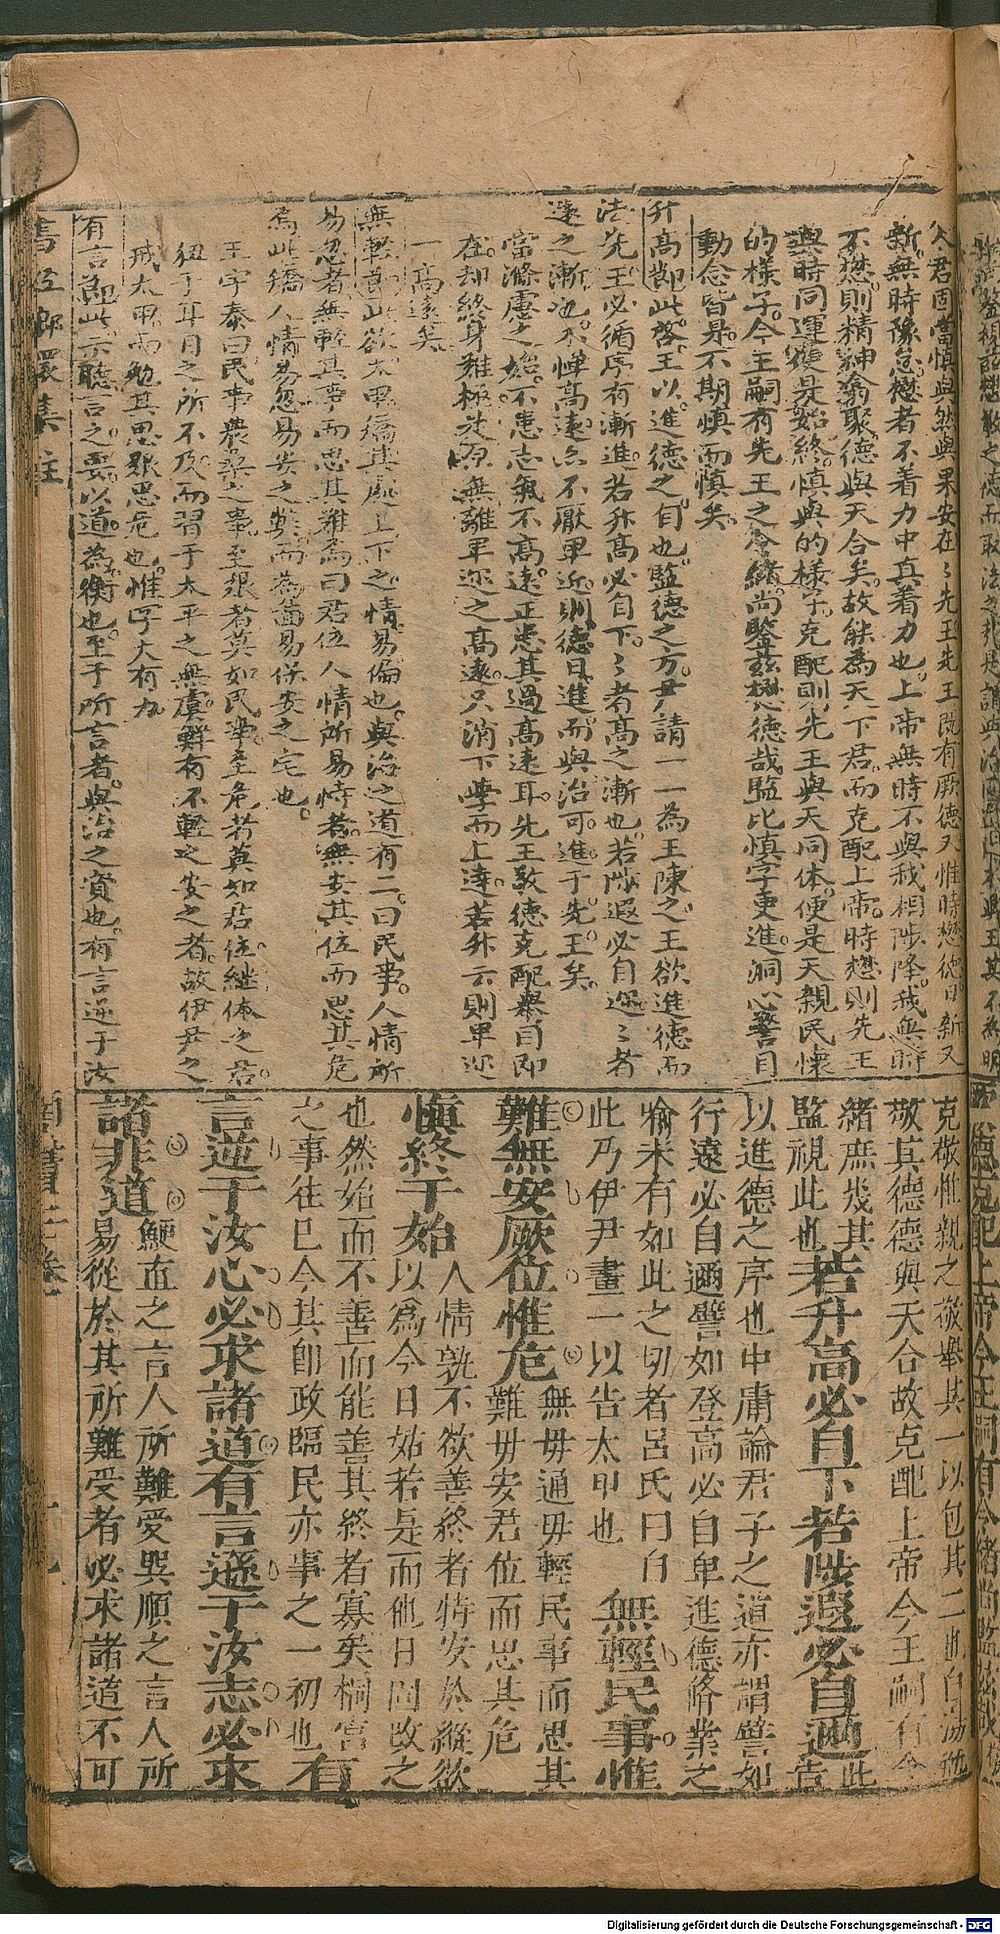 人君固當慎與然與果安在先王先王既有厥德又惟時懋德日新又
新無時豫怠懋者不着力中真着力也上帝無時不與我相陟降我無時
不懋則精神翕聚德與天合矣故能為天下君而克配上帝時懋則先王
與時同運復是始終慎與的樣子克配則先王與天同体便是天親民懷
的樣子今王嗣有先王之令緒尚鑒茲懋德哉監比慎字更進洞心警目
動念皆是不期慎而慎矣
升高節此啓王以進德之自也監德之方尹請一一為王陳之王欲進德而
法先王必循序有漸進若升高必自下下者高之漸也若陟遐必自邇邇者
遠之漸也不憚高遠亦不厭卑近則德日進而與治可進于先王矣
當滌慮之始不患志氣不高遠正患其過高遠耳先王敬德克配舉目即
在却終身難極是原無離卑迩之高遠只消下學而上達若升云則卑迩
一高遠矣
無輕節此欲太甲矯其處上下之情易偷也與治之道有二曰民事人情所
易忽者無輕其事而思其難為曰君位人情所易恃者無安其位而思其危
為此矯人情易忽易安之弊而為圖易保安之宅也
王宇泰曰民事農桑之事至艱者莫如民事至危者莫如君位継体之君
紐于耳目之所不及而習于太平之無虞鮮有不輕之安之者故伊尹之
戒太甲而勉其思艱思危也惟字大有力
有言節此示聽言之要以道為衡也至于所言者與治之資也有言逆于汝
克敬惟親之敬舉其一以包其二也
敬其德德與天合故克配上帝今王嗣有令
緒庶幾其監視此也若升高必自下若陟遐必自邇此告
以進德之序也中庸論君子之道亦謂譬如
行遠必自邇譬如登高必自卑進德脩業之
喻未有如此之切者呂氏曰自
此乃伊尹畫一以告太甲也無輕民事惟
難無安厥位惟危無毋通毋輕民事而思其
難毋安君位而思其危
慎終于始人情孰不欲善終者特安於縱欲
以為今日姑若是而他日固改之
也然始而不善而能善其終者寡矣桐宮
之事往已今其卽政臨民亦事之一初也有
言逆于汝心必求諸道有言遜于汝志必求
諸非道鯁直之言人所難受巽順之言人所
易從於其所難受者必求諸道不可
書經郎環集註
商書三卷
Digitalisierung gefördert durch die Deutsche Forschungsgemeinschaft - DFG